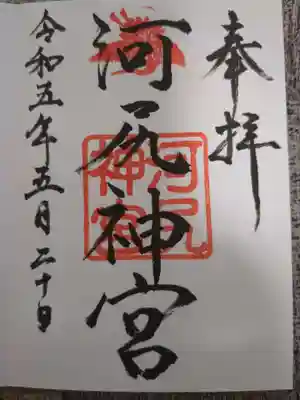 奉拝
河尻神宮
河尻神宮
令和五年五月二十日